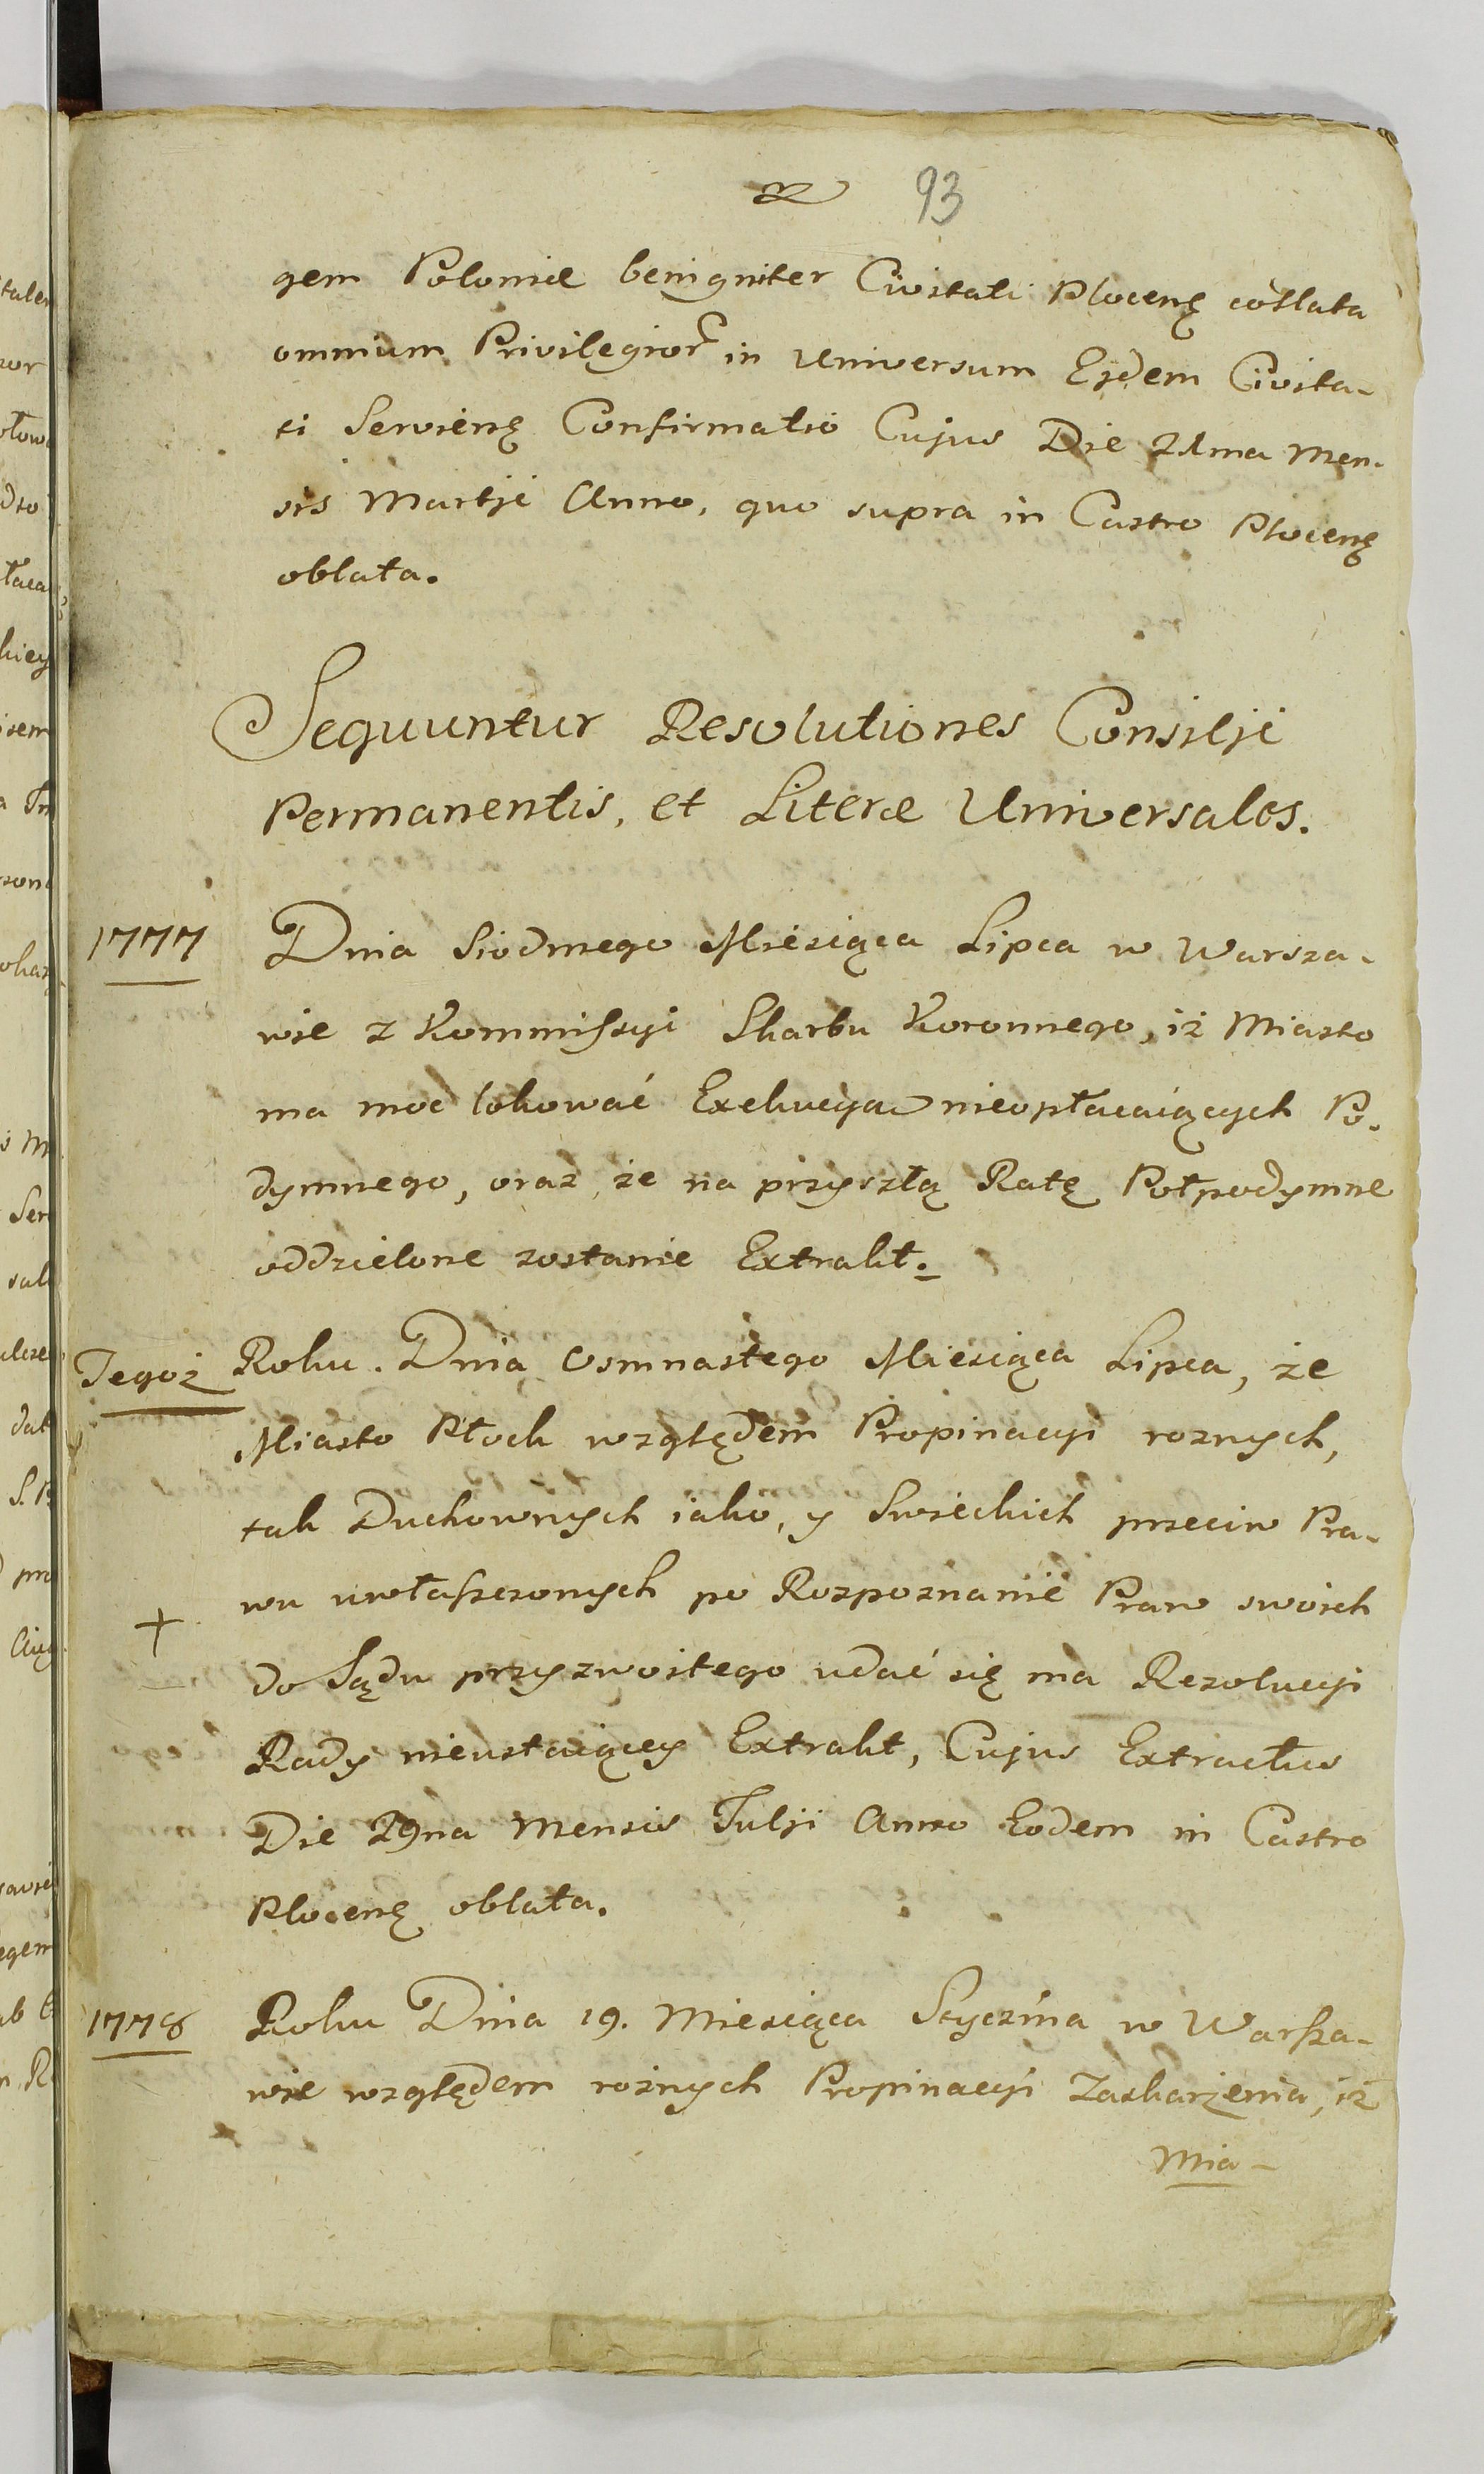 93
gem Poloniæ benigniter Civitati Plocenę collata
omnium Privilegior in Universum Ejdem Civita-
ti Servienę Confirmatio Cujus Die 21ma Men-
sis Martji Anno, quo supra in Castro Plocenę
oblata.
Sequuntur Resolutiones Consilji
Permanentis, et Literæ Universales.
1777 Dnia Siodmego Miesiąca Lipca w Warsza-
wie z Kommissyi Skarbu Koronnego, iż Miasto
ma moc lokować Exekucyą nieopłacaiących Po-
dymnego, oraz że na przyszłą Ratę Połpodymne
oddzielone zostanie Extrakt.
Tegoż Roku. Dnia Osmnastego Miesiąca Lipca, że
Miasto Płock względem Propinacyi roznych,
tak Duchownych iako, y Swieckich przeciw Pra-
wu uwłaszczonych po Rozpoznanie Praw swoich
+ do Sądu przyzwoitego udać się ma Rezolucyi
Rady nieustaiącey Extrakt, Cujus Extractus
Die 29na Mensis Julji Anno Eodem in Castro
Plocenę oblata.
1778 Roku Dnia 19. Miesiąca Stycznia w Warsza-
wie względem rożnych Propinacyi Zaskarżenia, iż
Mia-